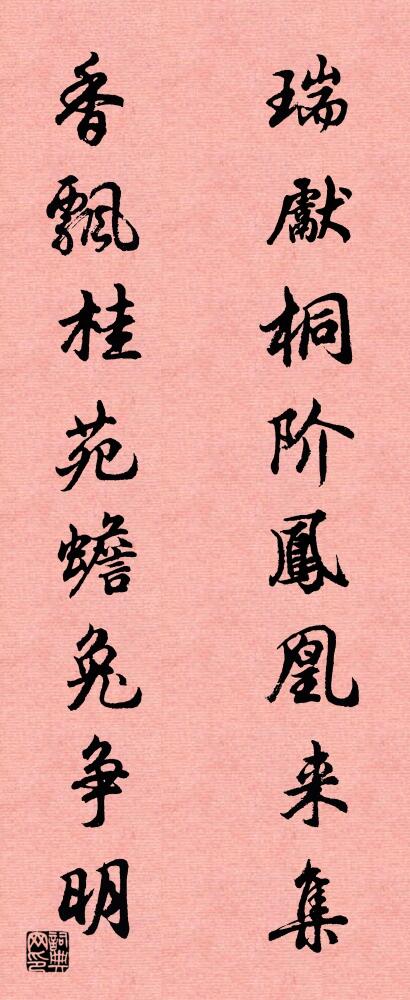 瑞獻桐阶鳳凰来集
香飄桂苑蟾兔争明
詞典网印